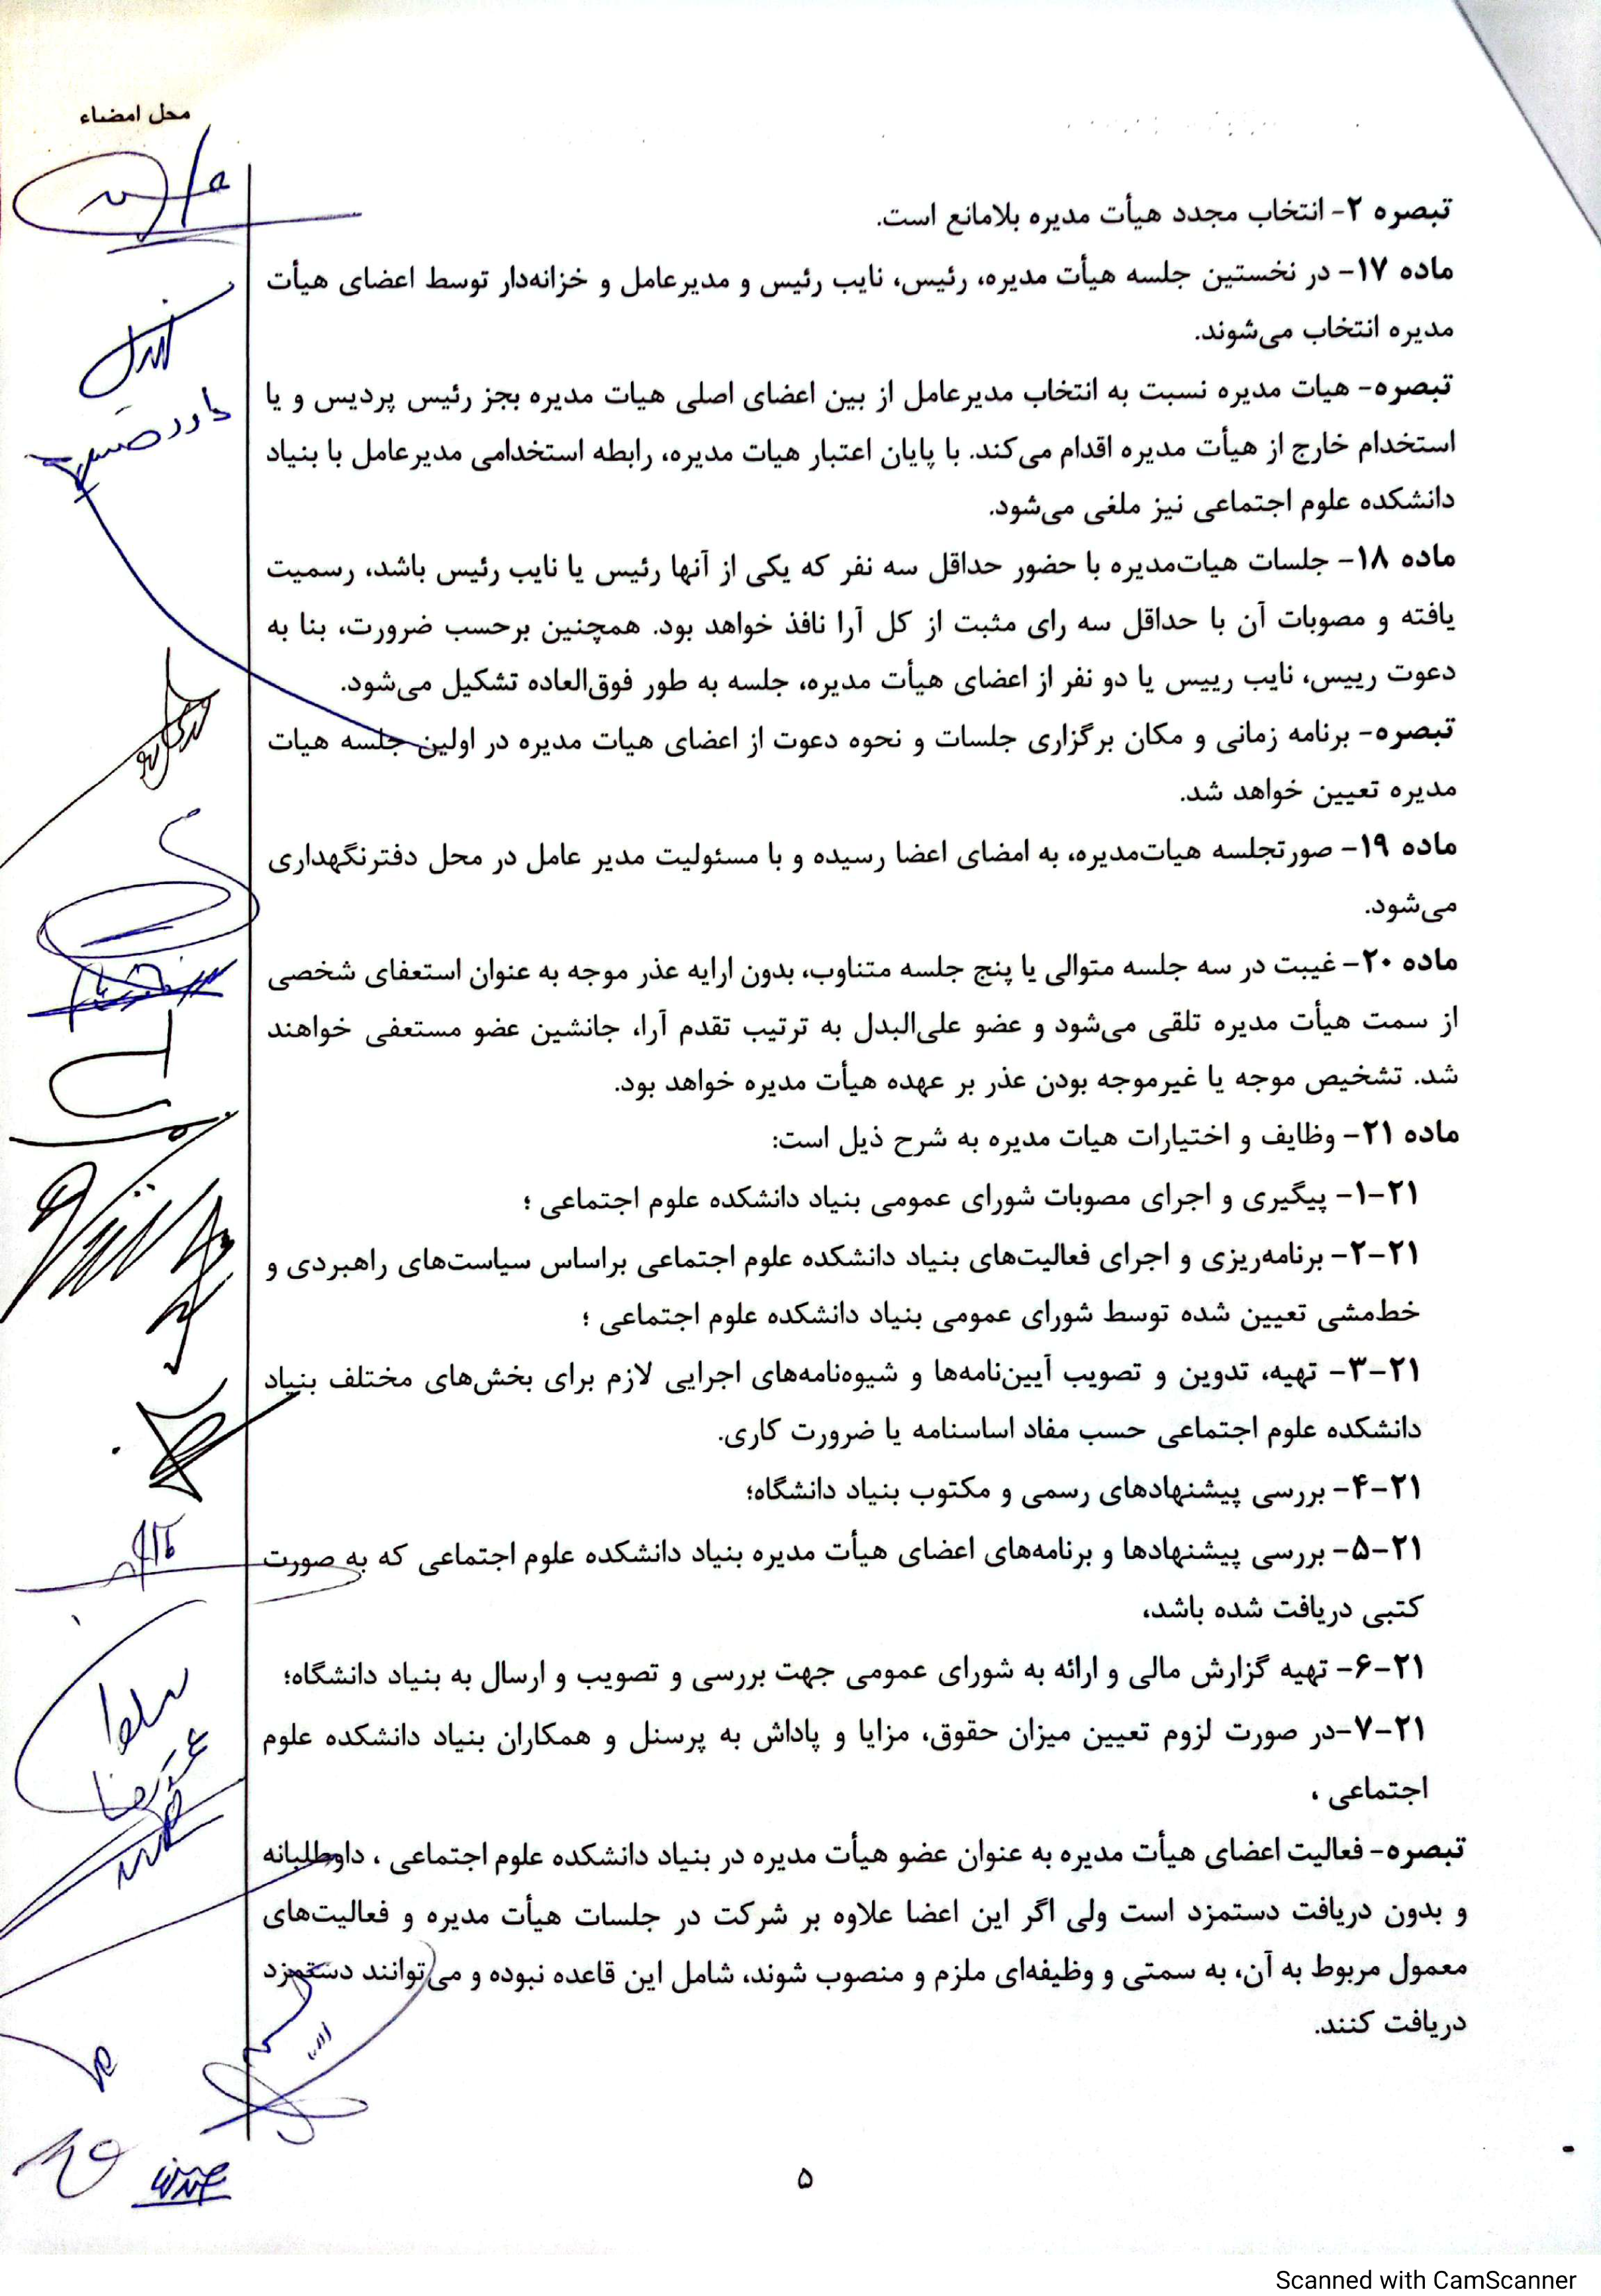 محل امضاء
تبصره ۲- انتخاب مجدد هیأت مدیره بلامانع است.
ماده ۱۷- در نخستین جلسه هیأت مدیره، رئیس، نایب رئیس و مدیرعامل و خزانه‌دار توسط اعضای هیأت
مدیره انتخاب می‌شوند.
تبصره- هیات مدیره نسبت به انتخاب مدیرعامل از بین اعضای اصلی هیات مدیره بجز رئیس پردیس و یا
استخدام خارج از هیأت مدیره اقدام می‌کند. با پایان اعتبار هیات مدیره، رابطه استخدامی مدیرعامل با بنیاد
دانشکده علوم اجتماعی نیز ملغی می‌شود.
ماده ۱۸- جلسات هیات‌مدیره با حضور حداقل سه نفر که یکی از آنها رئیس یا نایب رئیس باشد، رسمیت
یافته و مصوبات آن با حداقل سه رای مثبت از کل آرا نافذ خواهد بود. همچنین برحسب ضرورت، بنا به
دعوت رییس، نایب رییس یا دو نفر از اعضای هیأت مدیره، جلسه به طور فوق‌العاده تشکیل می‌شود.
تبصره- برنامه زمانی و مکان برگزاری جلسات و نحوه دعوت از اعضای هیات مدیره در اولین جلسه هیات
مدیره تعیین خواهد شد.
ماده ۱۹- صورتجلسه هیات‌مدیره، به امضای اعضا رسیده و با مسئولیت مدیر عامل در محل دفترنگهداری
می‌شود.
ماده ۲۰- غیبت در سه جلسه متوالی یا پنج جلسه متناوب، بدون ارایه عذر موجه به عنوان استعفای شخصی
از سمت هیأت مدیره تلقی می‌شود و عضو علی‌البدل به ترتیب تقدم آرا، جانشین عضو مستعفی خواهند
شد. تشخیص موجه یا غیرموجه بودن عذر بر عهده هیأت مدیره خواهد بود.
ماده ۲۱- وظایف و اختیارات هیات مدیره به شرح ذیل است:
۲۱-۱- پیگیری و اجرای مصوبات شورای عمومی بنیاد دانشکده علوم اجتماعی ؛
۲۱-۲- برنامه‌ریزی و اجرای فعالیت‌های بنیاد دانشکده علوم اجتماعی براساس سیاست‌های راهبردی و
خط‌مشی تعیین شده توسط شورای عمومی بنیاد دانشکده علوم اجتماعی ؛
۲۱-۳- تهیه، تدوین و تصویب آیین‌نامه‌ها و شیوه‌نامه‌های اجرایی لازم برای بخش‌های مختلف بنیاد
دانشکده علوم اجتماعی حسب مفاد اساسنامه یا ضرورت کاری.
۲۱-۴- بررسی پیشنهادهای رسمی و مکتوب بنیاد دانشگاه؛
۲۱-۵- بررسی پیشنهادها و برنامه‌های اعضای هیأت مدیره بنیاد دانشکده علوم اجتماعی که به صورت
کتبی دریافت شده باشد،
۲۱-۶- تهیه گزارش مالی و ارائه به شورای عمومی جهت بررسی و تصویب و ارسال به بنیاد دانشگاه؛
۲۱-۷-در صورت لزوم تعیین میزان حقوق، مزایا و پاداش به پرسنل و همکاران بنیاد دانشکده علوم
اجتماعی ،
تبصره- فعالیت اعضای هیأت مدیره به عنوان عضو هیأت مدیره در بنیاد دانشکده علوم اجتماعی ، داوطلبانه
و بدون دریافت دستمزد است ولی اگر این اعضا علاوه بر شرکت در جلسات هیأت مدیره و فعالیت‌های
معمول مربوط به آن، به سمتی و وظیفه‌ای ملزم و منصوب شوند، شامل این قاعده نبوده و می‌توانند دستمزد
دریافت کنند.
۵
Scanned with CamScanner